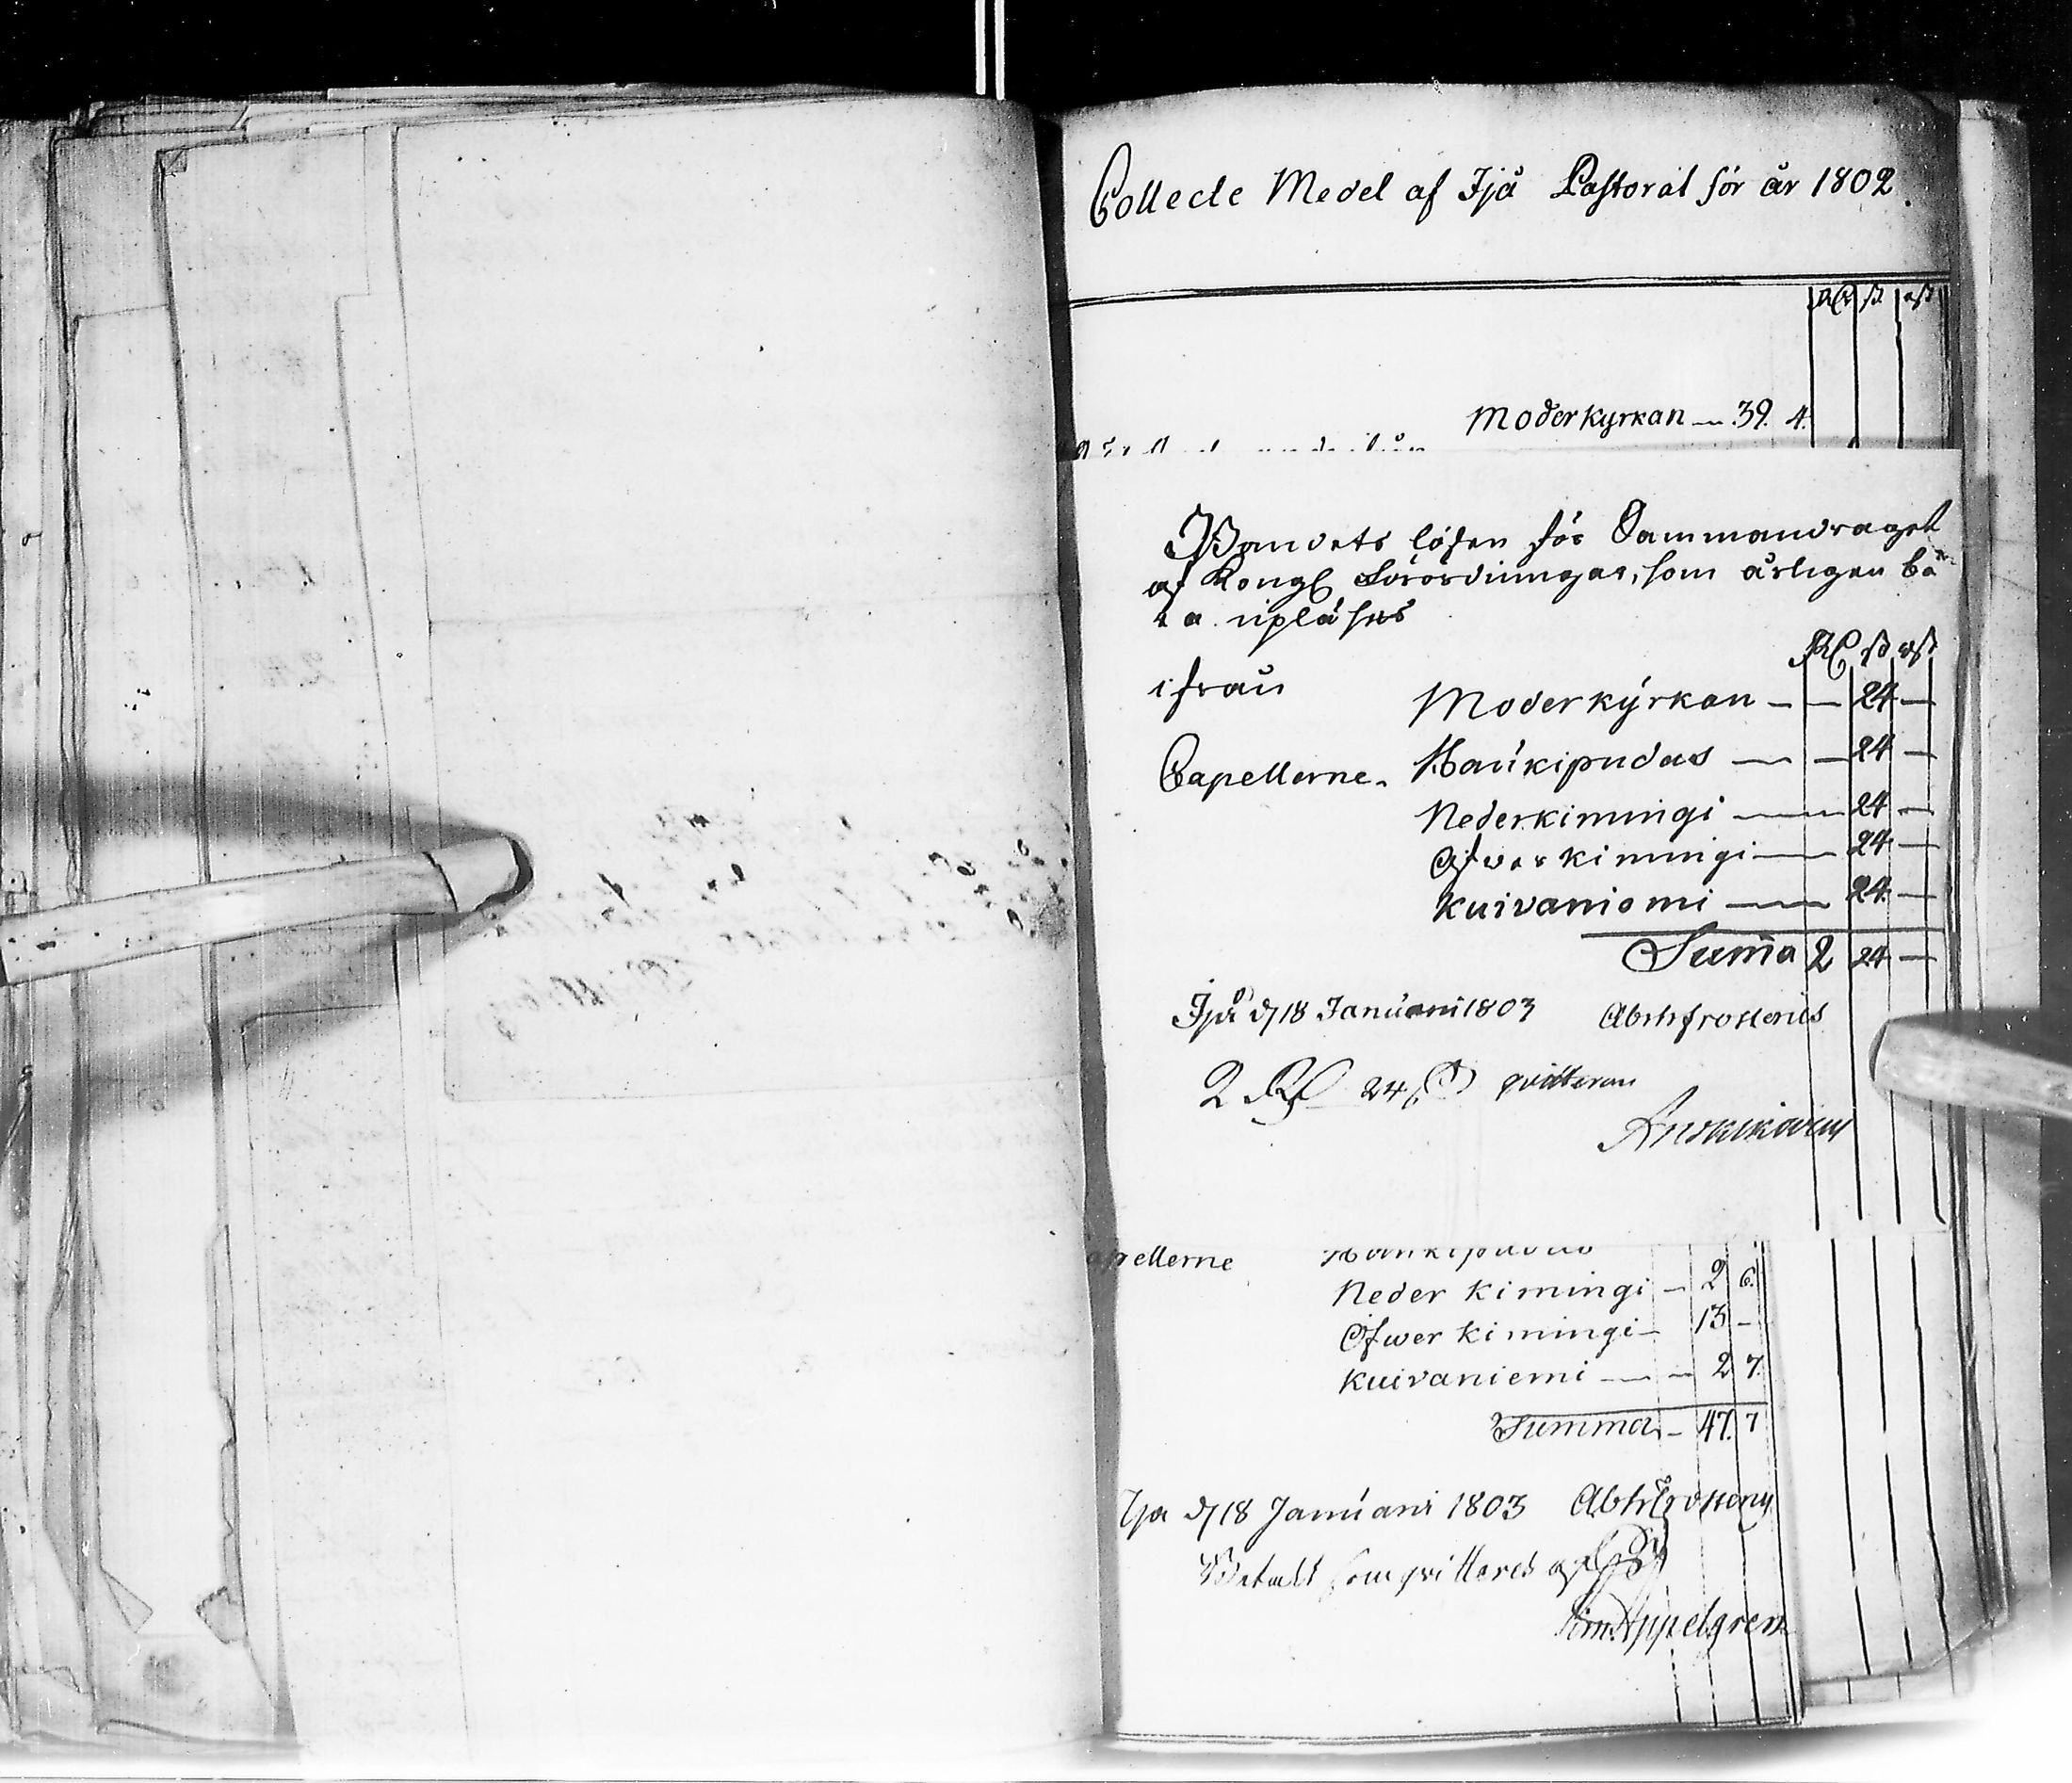 Collecte Medel af Ijå Pastorat för år 1802.
RD ß rß
Moderkyrkan — 39. 4.
Bandets lösen för Sammandraget
af Kongl Förordningar, som årligen bö
ra upläsas
ifrån Moderkyrkan — — 24 —
Capellerne. Haukipudas — — 24 —
Nederkimingi — 24 —
Öfwerkimingi — 24 —
Kuivaniemi — 24 —
Summa 2 24 —
Ijå d 18 Januari 1803 Abrh Frosterus
2 RD 24 ß qvitteras
apellerne Haukipudas
Neder Kimingi — 2 6.
Öfwer Kimingi — 13 —
Kuivaniemi — — 2 7.
Summa — 47. 7
Ija d 18 Januari 1803 Abrh Frosterus
Betalt som qvitteras af
Sim Appelgren